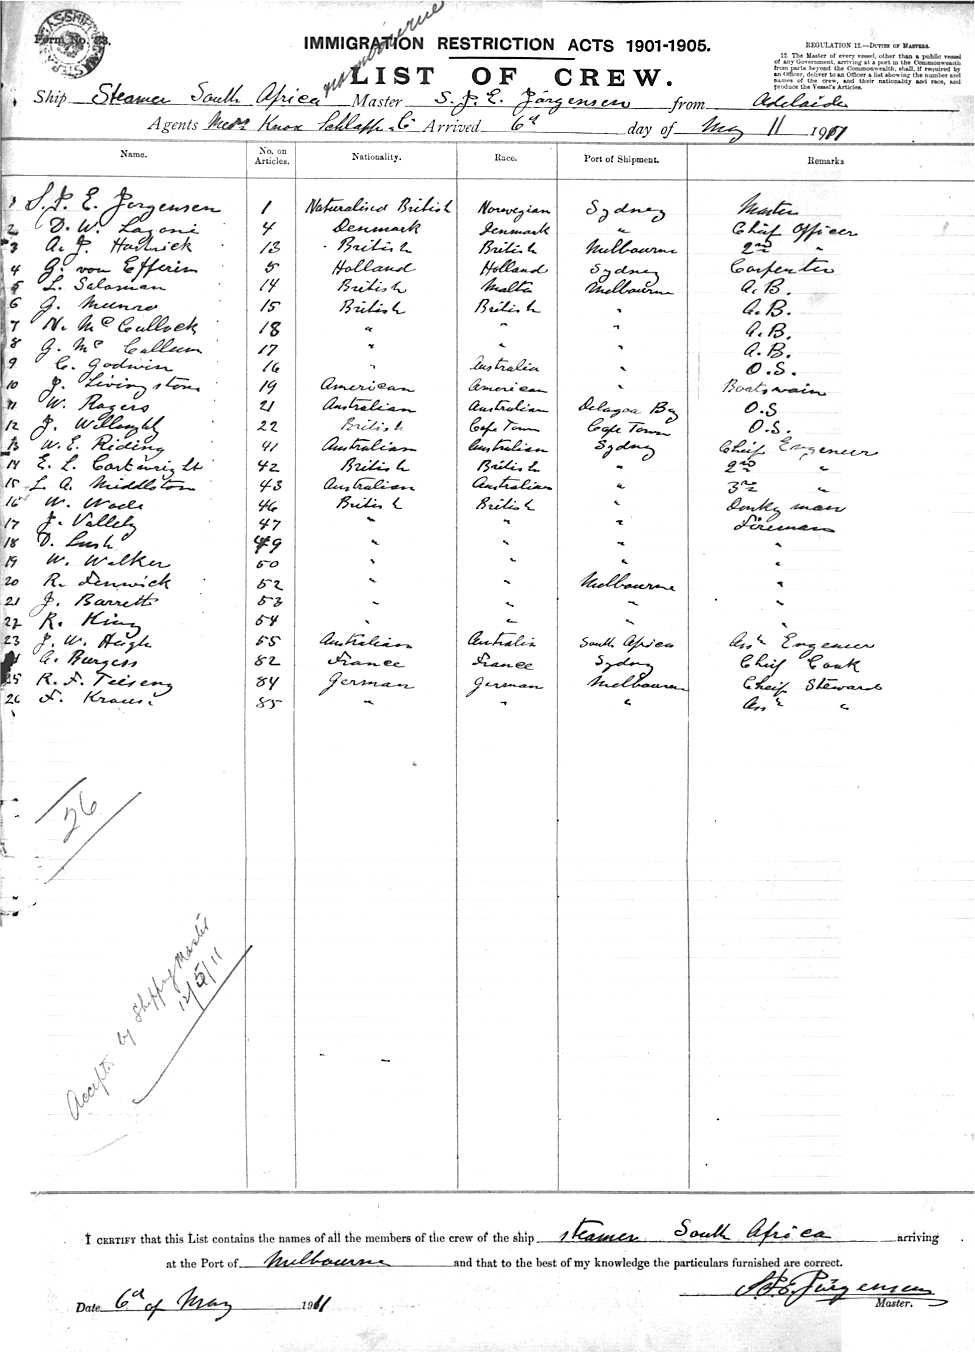 Form No. 33.
Melbourne
IMMIGRATION RESTRICTION ACTS 1901-1905.
LIST OF CREW.
REGULATION 12.—DUTIES OF MASTERS.
12 The Master of every vessel, other than a public vessel
of any Government, arriving at a port in the Commonwealth
from parts beyond the Commonwealth, shall, if required by
an Officer, deliver to an Officer a list showing the number and
names of the crew, and their nationality and race, and
produce the Vessel's Articles.
Ship Steamer South Africa Master S. J. E. Jörgensen from Adelaide
Agents Messrs Knox Schlapp & Co Arrived 6d day of May 11 1911
Name. No. on Articles. Nationality. Race. Port of Shipment. Remarks
1 S. J. E. Jorgensen 1 Naturalised British Norwegian Sydney Master
2 D. W. Lagoni 4 Denmark Denmark " Chief Officer
3 A. J. Hartrick 13 British British Melbourne 2nd "
4 G. von Efferin 5 Holland Holland Sydney Carpenter
5 L. Salaman 14 British Malta Melbourne A.B.
6 G. Munro 15 British British " A.B.
7 N. McCullock 18 " " " A.B.
8 G. Mc Callum 17 " " " A.B.
9 C. Godwin 16 " Australia O.S.
10 J. Livingstone 19 American American " Boatswain
11 W. Rogers 21 Australian Australian Delagoa Bay O.S
12 J. Willoughby 22 British Cape Town Cape Town O.S.
13 W. E. Riding 41 Australian Australian Sydney Chief Engeneer
14 E. L. Cartwright 42 British British " 2nd "
15 L. A. Middleton 43 Australian Australian " 3rd "
16 W. Wade 46 British British " Donkyman
17 J. Vallely 47 " " " Fireman
18 D. Lush 49 " " " "
19 W. Walker 50 " " " "
20 R. Fenwick 52 " " Melbourne "
21 J. Barrett 53 " " " "
22 R. King 54 " " "
23 J. W. Heigh 55 Australian Australia South Africa Asst Engeneer
A. Burgess 82 France France Sydney Chief Cook
25 R. F. Teiseng 84 German German Melbourne Cheif Steward
26 F. Krause 85 " " " Asst "
26
Accepted by Shipping Master
12/5/11
I CERTIFY that this List contains the names of all the members of the crew of the ship steamer South Africa arriving
at the Port of Melbourne and that to the best of my knowledge the particulars furnished are correct.
S. J. E. Jörgensen
Date 6d of May 1911 Master.